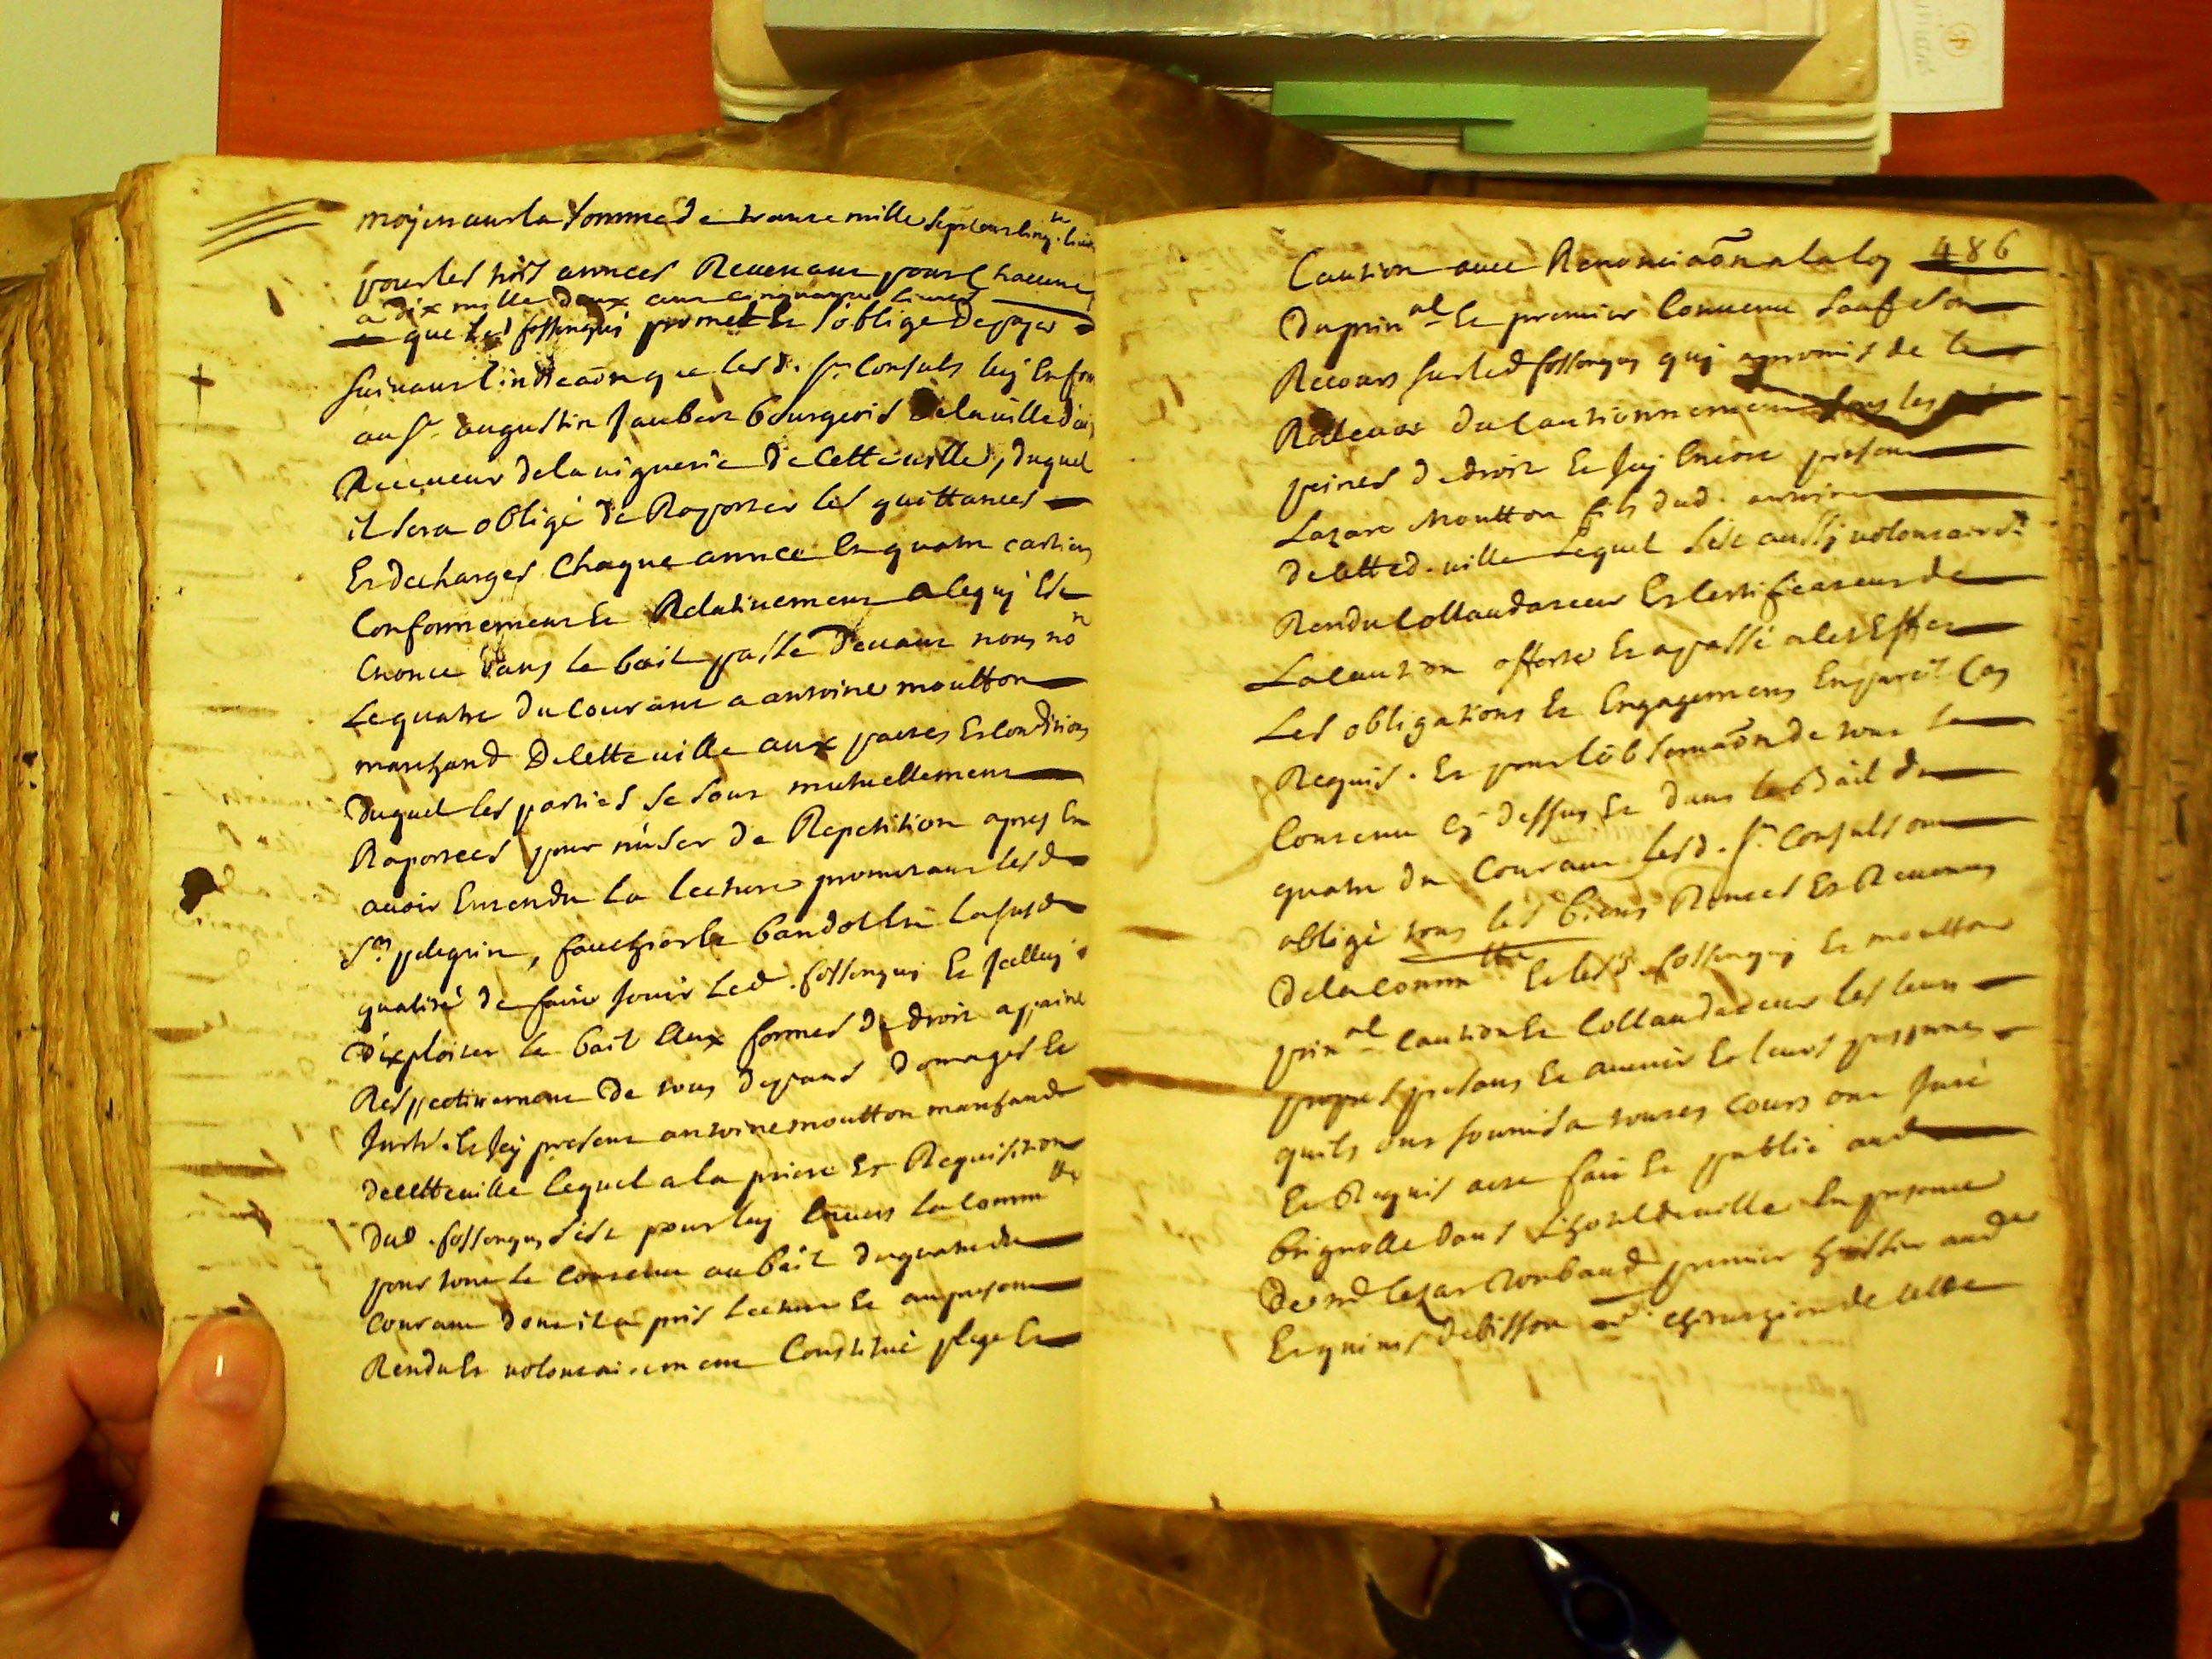 moyenant la somme de trante mille sept cent cinq.te livres
pour les trois années Revenant pour chacune
a dix mille deux cent cinquante livres
que led fossenqui promet et s'oblige de payer
suivant l'indicaõn que lesd. srs Consuls luy en font
au sr augustin Jaubert bourgeois de la ville d'aix
Receveur de la viguerie de cette ville, duquel
il sera obligé de Raporter les quittances
Et decharges Chaque année En quatre cartiers
Conformement Et Relativement a ce qui Est
Enoncé dans le bail passé devant nous no.re
Le quatre du courant a antoine moutton
marchand de cette ville aux pactes Et conditions
duquel les parties se sont mutuellement
Raportées pour n'user de Repetition apres En
avoir Entendu la lecture promettant lesd
srs pelegrin, fauchier Et bandol En lad
qualité de faire jouir led. fossenqui Et
d'exploiter le bail aux formes de droit a paine
Respectivement de tous depans domages Et
Et icy present antoine moutton marchand
de cette ville lequel a la priere Et Requisition
dud. fossenqui s'est pour luy Envers la comm.té
pour tout le contenu au bail du quatre du
courant dont il a pris lecture Et au present
Rendu Et volontairement Constitué plege Et
486
Caution avec Renonciaõn a la loy
du prin.al Et premier Convenu sauf son
Recours sur led fossenqui qui a promis de le
Relever du Cautionnement sous les
peines de droit Et icy Encore present
Lazare Moutton fils dud. antoine
de cette d. ville Lequel s'est aussy volontairem.t
Rendu Collaudateur Et Certificateur de
La caution offerte Et a passé a cet Effet
Les obligations Et Engagemens En pareil Cas
Requis. Et pour l'observaõn de tout le
Contenu cy dessus Et dans le Bail du
quatre du Courant lesd. srs Consuls ont
obligé tous les biens Rentes Et Revenus
de la comm.té Et lesd. fossenqui Et moutton
prin.al caution Et Collaudateur les leurs
propres presans Et avenir Et leurs personnes
qu'ils ont soumis a toutes Cours ont Juré
Et Requis acte fait Et publié aud
brignolle dans L'hostel de ville En presence
de Cezar Roubaud premier huissier aud
chirurgien de cette